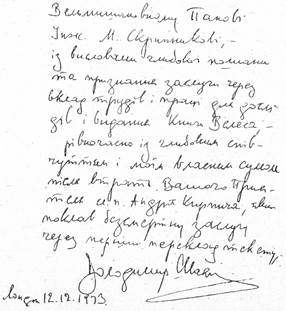 Вельмишановному Панові
Інж. М. Скрипникові,-
із висловами глибокої пошани
та признання заслуги через
вклад трудів і праці для дослі-
дів і видання Книги Велеса,-
рівночасно із глибоким спів-
чуттям і моїм власним сумом
після втрати Вашого Прия-
теля с.п. Андрія Кирпича, який
поклав безсмертну заслугу
через перший переклад тексту,
Володимир
Лондон 12.12.1973.